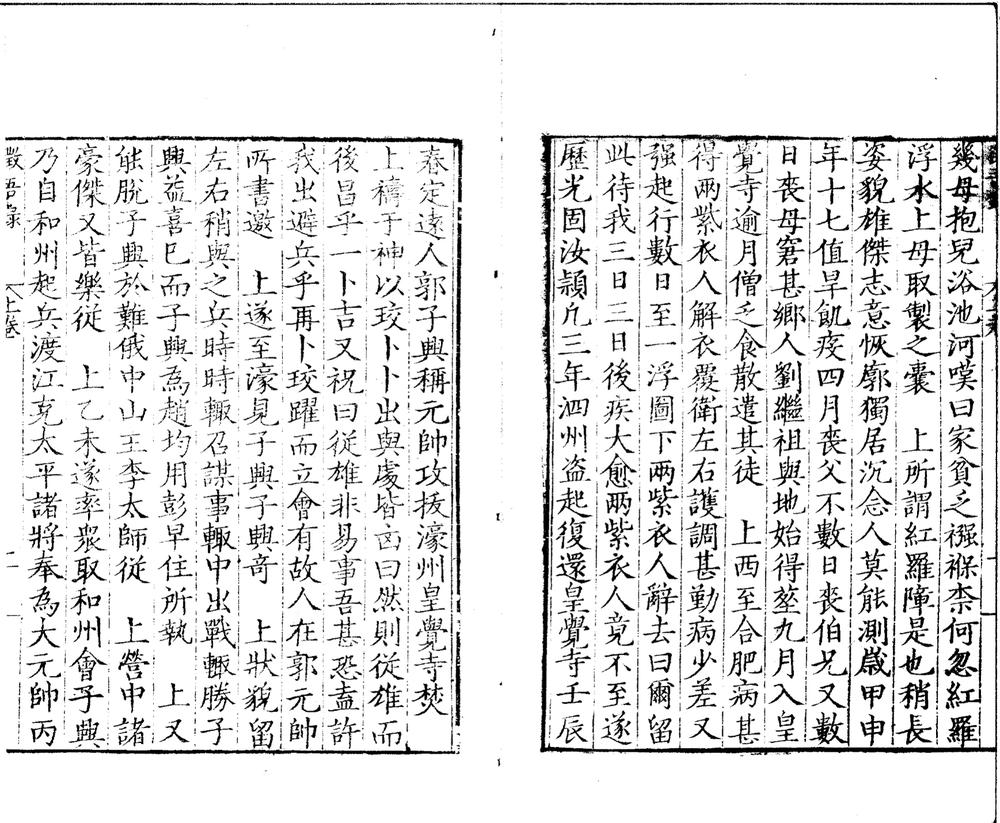 幾母抱兒浴池河嘆曰家貧乏襁褓柰何忽紅羅
浮水上母取製之囊　上所謂紅羅障是也稍長
姿貌雄傑志意恢廓獨居沉念人莫能測歲甲申
年十七值旱飢疫四月喪父不數日喪伯兄又數
日喪母窘甚鄉人劉繼祖與地始得塟九月入皇
覺寺逾月僧乏食散遣其徒　上西至合肥病甚
得兩紫衣人解衣覆衛左右護調甚勤病少差又
强起行數日至一浮圖下兩紫衣人辭去曰爾留
此待我三日三日後疾大愈兩紫衣人竟不至遂
歷光固汝頴凡三年泗州盗起復還皇覺寺壬辰
春定遠人郭子興稱元帥攻拔濠州皇覺寺焚
上禱于神以珓卜卜出與處皆㐫曰然則從雄而
後昌乎一卜吉又祝曰從雄非易事吾甚恐盍許
我出避兵乎再卜珓躍而立會有故人在郭元帥
所書邀　上遂至濠見子興子興竒　上狀貌留
左右稍與之兵時時輙召謀事輙中出戰輙勝子
興益喜已而子興為趙均用彭早住所執　上又
能脫子興於難俄中山王李太師従　上營中諸
豪傑又皆樂従　上乙未遂率衆取和州會子興
乃自和州起兵渡江克太平諸將奉為大元帥丙
徵吾錄　上卷